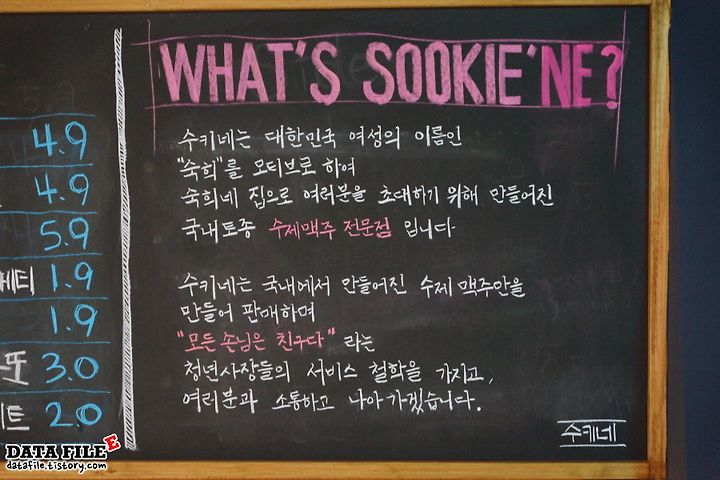 WHAT'S SOOKIE'NE?
수키네는 대한민국 여성의 이름인
"숙희"를 모티브로 하여
숙희네 집으로 여러분을 초대하기 위해 만들어진
국내토종 수제맥주 전문점 입니다
수키네는 국내에서 만들어진 수제 맥주만을
만들어 판매하며
"모든 손님은 친구다" 라는
청년사장들의 서비스 철학을 가지고,
여러분과 소통하고 나아가겠습니다.
수키네
4.9
4.9
5.9
게티 1.9
1.9
또 3.0
트 2.0
DATA FILE E
datafile.tistory.com